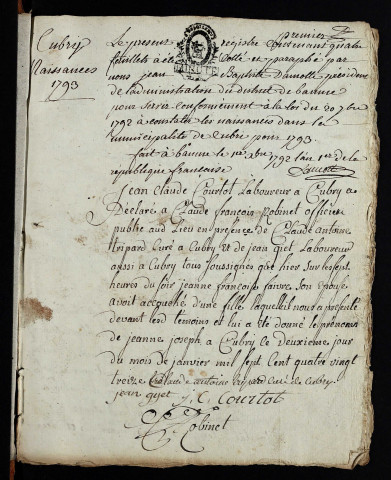 Cubry
Naissances
1793
premier
Le présent registre contenant quatre
feuillets a été cotté et paraphé par
nous jean Baptiste Damotte président
de l'administration du district de baume
pour servir conformément a la loi du 20 7bre
1792 a constater les naissances dans la
municipalité de Cubri pour 1793.
fait a baume le 1792 l'an 1er de la
république françoise
Jean Claude Courtot Laboureur a Cubry a
Déclaré a Claude françois Robinet officier
publie au Lieu en présence de Claude antoine
tripard Curé a Cubry et de jean giet Laboureur
aussi a Cubry tous soussignés que hier sur les sept
heures du soir jeanne françoise faivre son Epouse
avoit accouchée d'une fille laquelle il nous a présenté
devant lesd témoins et lui a été donné les prénoms
de jeanne joseph a Cubry le deuxieme jour
du mois de janvier mil sept Cent quatre vingt
treize Claude antoine tripard curé de cubry
jean gyet J. C. Courtot
Robinet